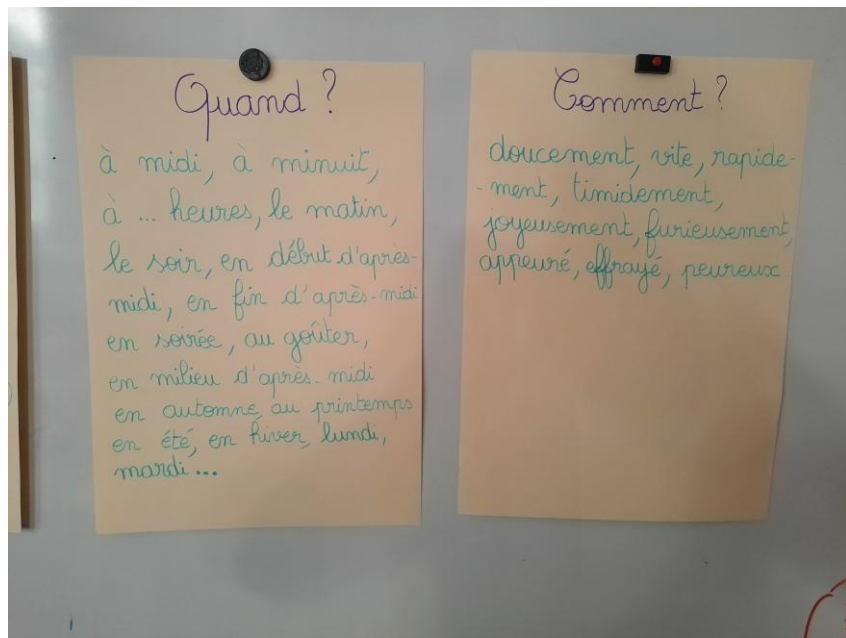 Quand ?
à midi, à minuit,
à ... heures, le matin,
le soir, en début d'après-
midi, en fin d'après-midi
en soirée, au goûter,
en milieu d'après-midi
en automne, au printemps
en été, en hiver, lundi,
mardi...
Comment ?
doucement, vite, rapide-
-ment, timidement,
joyeusement, furieusement,
appeuré, effrayé, peureux